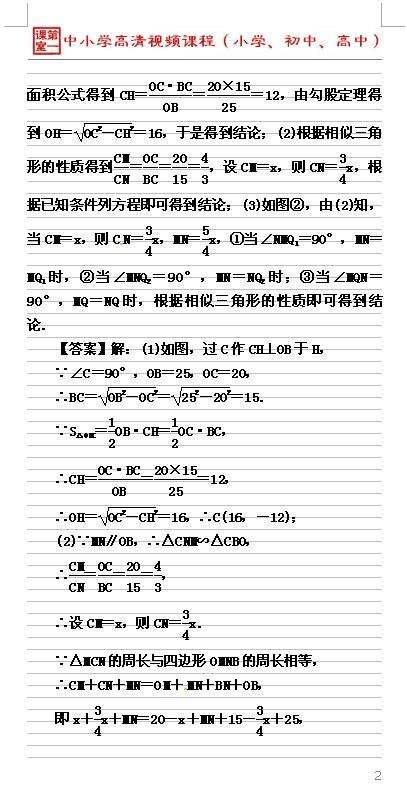 课第一室 中小学高清视频课程（小学、初中、高中）
面积公式得到 CH=OC·BC/OB=20×15/25=12，由勾股定理得
到 OH=√(OC²-CH²)=16，于是得到结论；(2)根据相似三角
形的性质得到CM/CN=OC/BC=20/15=4/3，设 CM=x，则 CN=3/4x，根
据已知条件列方程即可得到结论；(3)如图②，由(2)知，
当 CM=x，则 CN=3/4x，MN=5/4x，①当∠NMQ₁=90°，MN=
MQ₁时，②当∠MNQ₂=90°，MN=NQ₂时；③当∠MQN=
90°，MQ=NQ 时，根据相似三角形的性质即可得到结
论．
【答案】解：(1)如图，过 C 作 CH⊥OB 于 H，
∵∠C=90°，OB=25，OC=20，
∴BC=√(OB²-OC²)=√(25²-20²)=15．
∵S△OBC=1/2OB·CH=1/2OC·BC，
∴CH=OC·BC/OB=20×15/25=12，
∴OH=√(OC²-CH²)=16，∴C(16，-12)；
(2)∵MN∥OB，∴△CNM∽△CBO，
∴CM/CN=OC/BC=20/15=4/3，
∴设 CM=x，则 CN=3/4x．
∵△MCN 的周长与四边形 OMNB 的周长相等，
∴CM+CN+MN=OM+MN+BN+OB，
即 x+3/4x+MN=20-x+MN+15-3/4x+25，
2